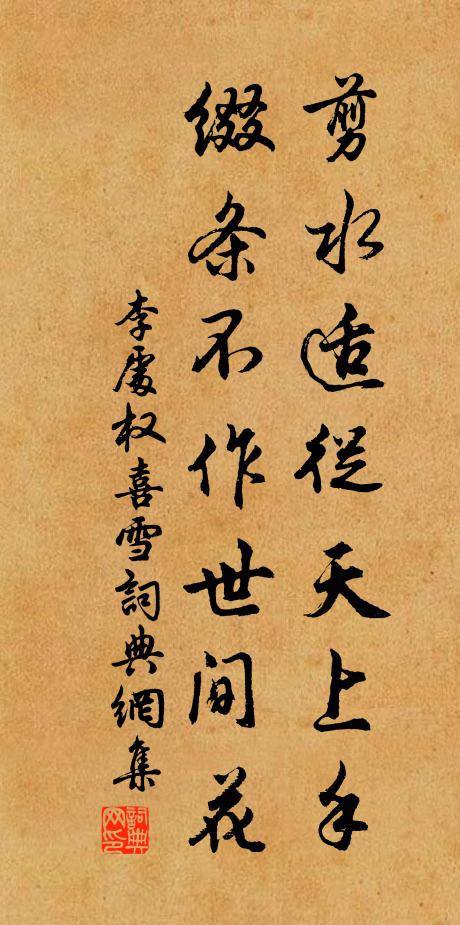 剪水适從天上手
缀条不作世间花
李處权喜雪詞典網集
詞典网印